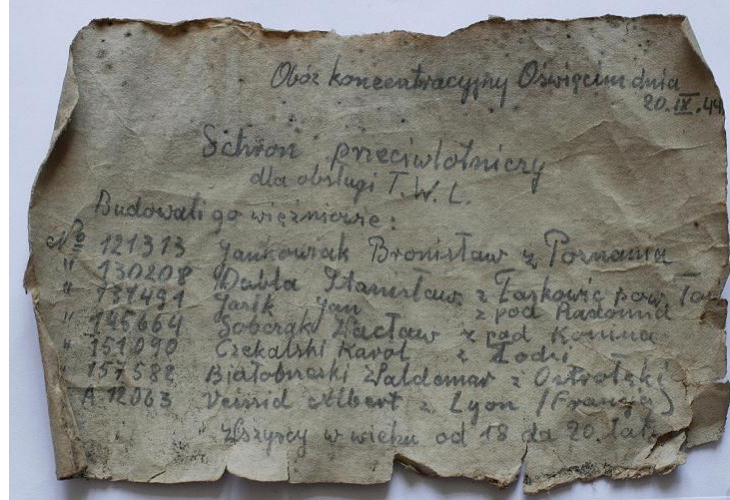 Obóz koncentracyjny Oświęcim dnia
20.IX.44
Schron przeciwlotniczy
dla obsługi T.W.L.
Budowali go więźniowie:
No 121313 Jankowiak Bronisław z Poznania
" 130208 Dubla Stanisław z Łaskowic pow. Tou
" 131491 Jasik Jan z pod Radomia
" 145664 Sobczak Wacław z pod Konina
" 151090 Czekalski Karol z Łodzi
" 157582 Białobrzeski Waldemar z Ostrołęki
A 12063 Veissid Albert z Lyon (Francja)
Wszyscy w wieku od 18 do 20 lat